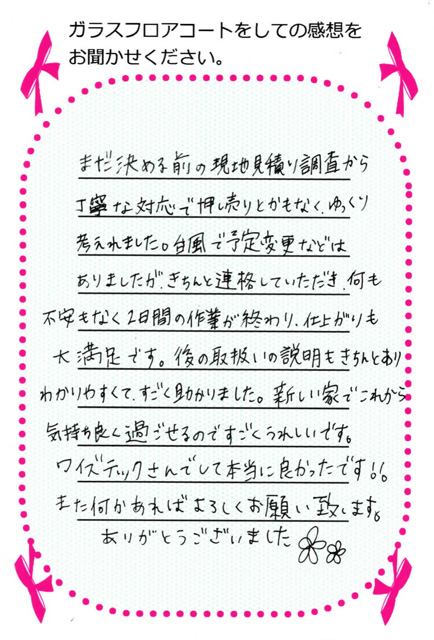 ガラスフロアコートをしての感想を
お聞かせください。
まだ決める前の現地見積り調査から
丁寧な対応で押し売りとかもなく、ゆっくり
考えれました。台風で予定変更などは
ありましたが、きちんと連絡していただき、何も
不安もなく2日間の作業が終わり、仕上がりも
大満足です。後の取扱いの説明もきちんとあり
わかりやすくて、すごく助かりました。新しい家でこれから
気持ち良く過ごせるのですごくうれしいです。
ワイズテックさんでして本当に良かったです!!
また何かあればよろしくお願い致します。
ありがとうございました